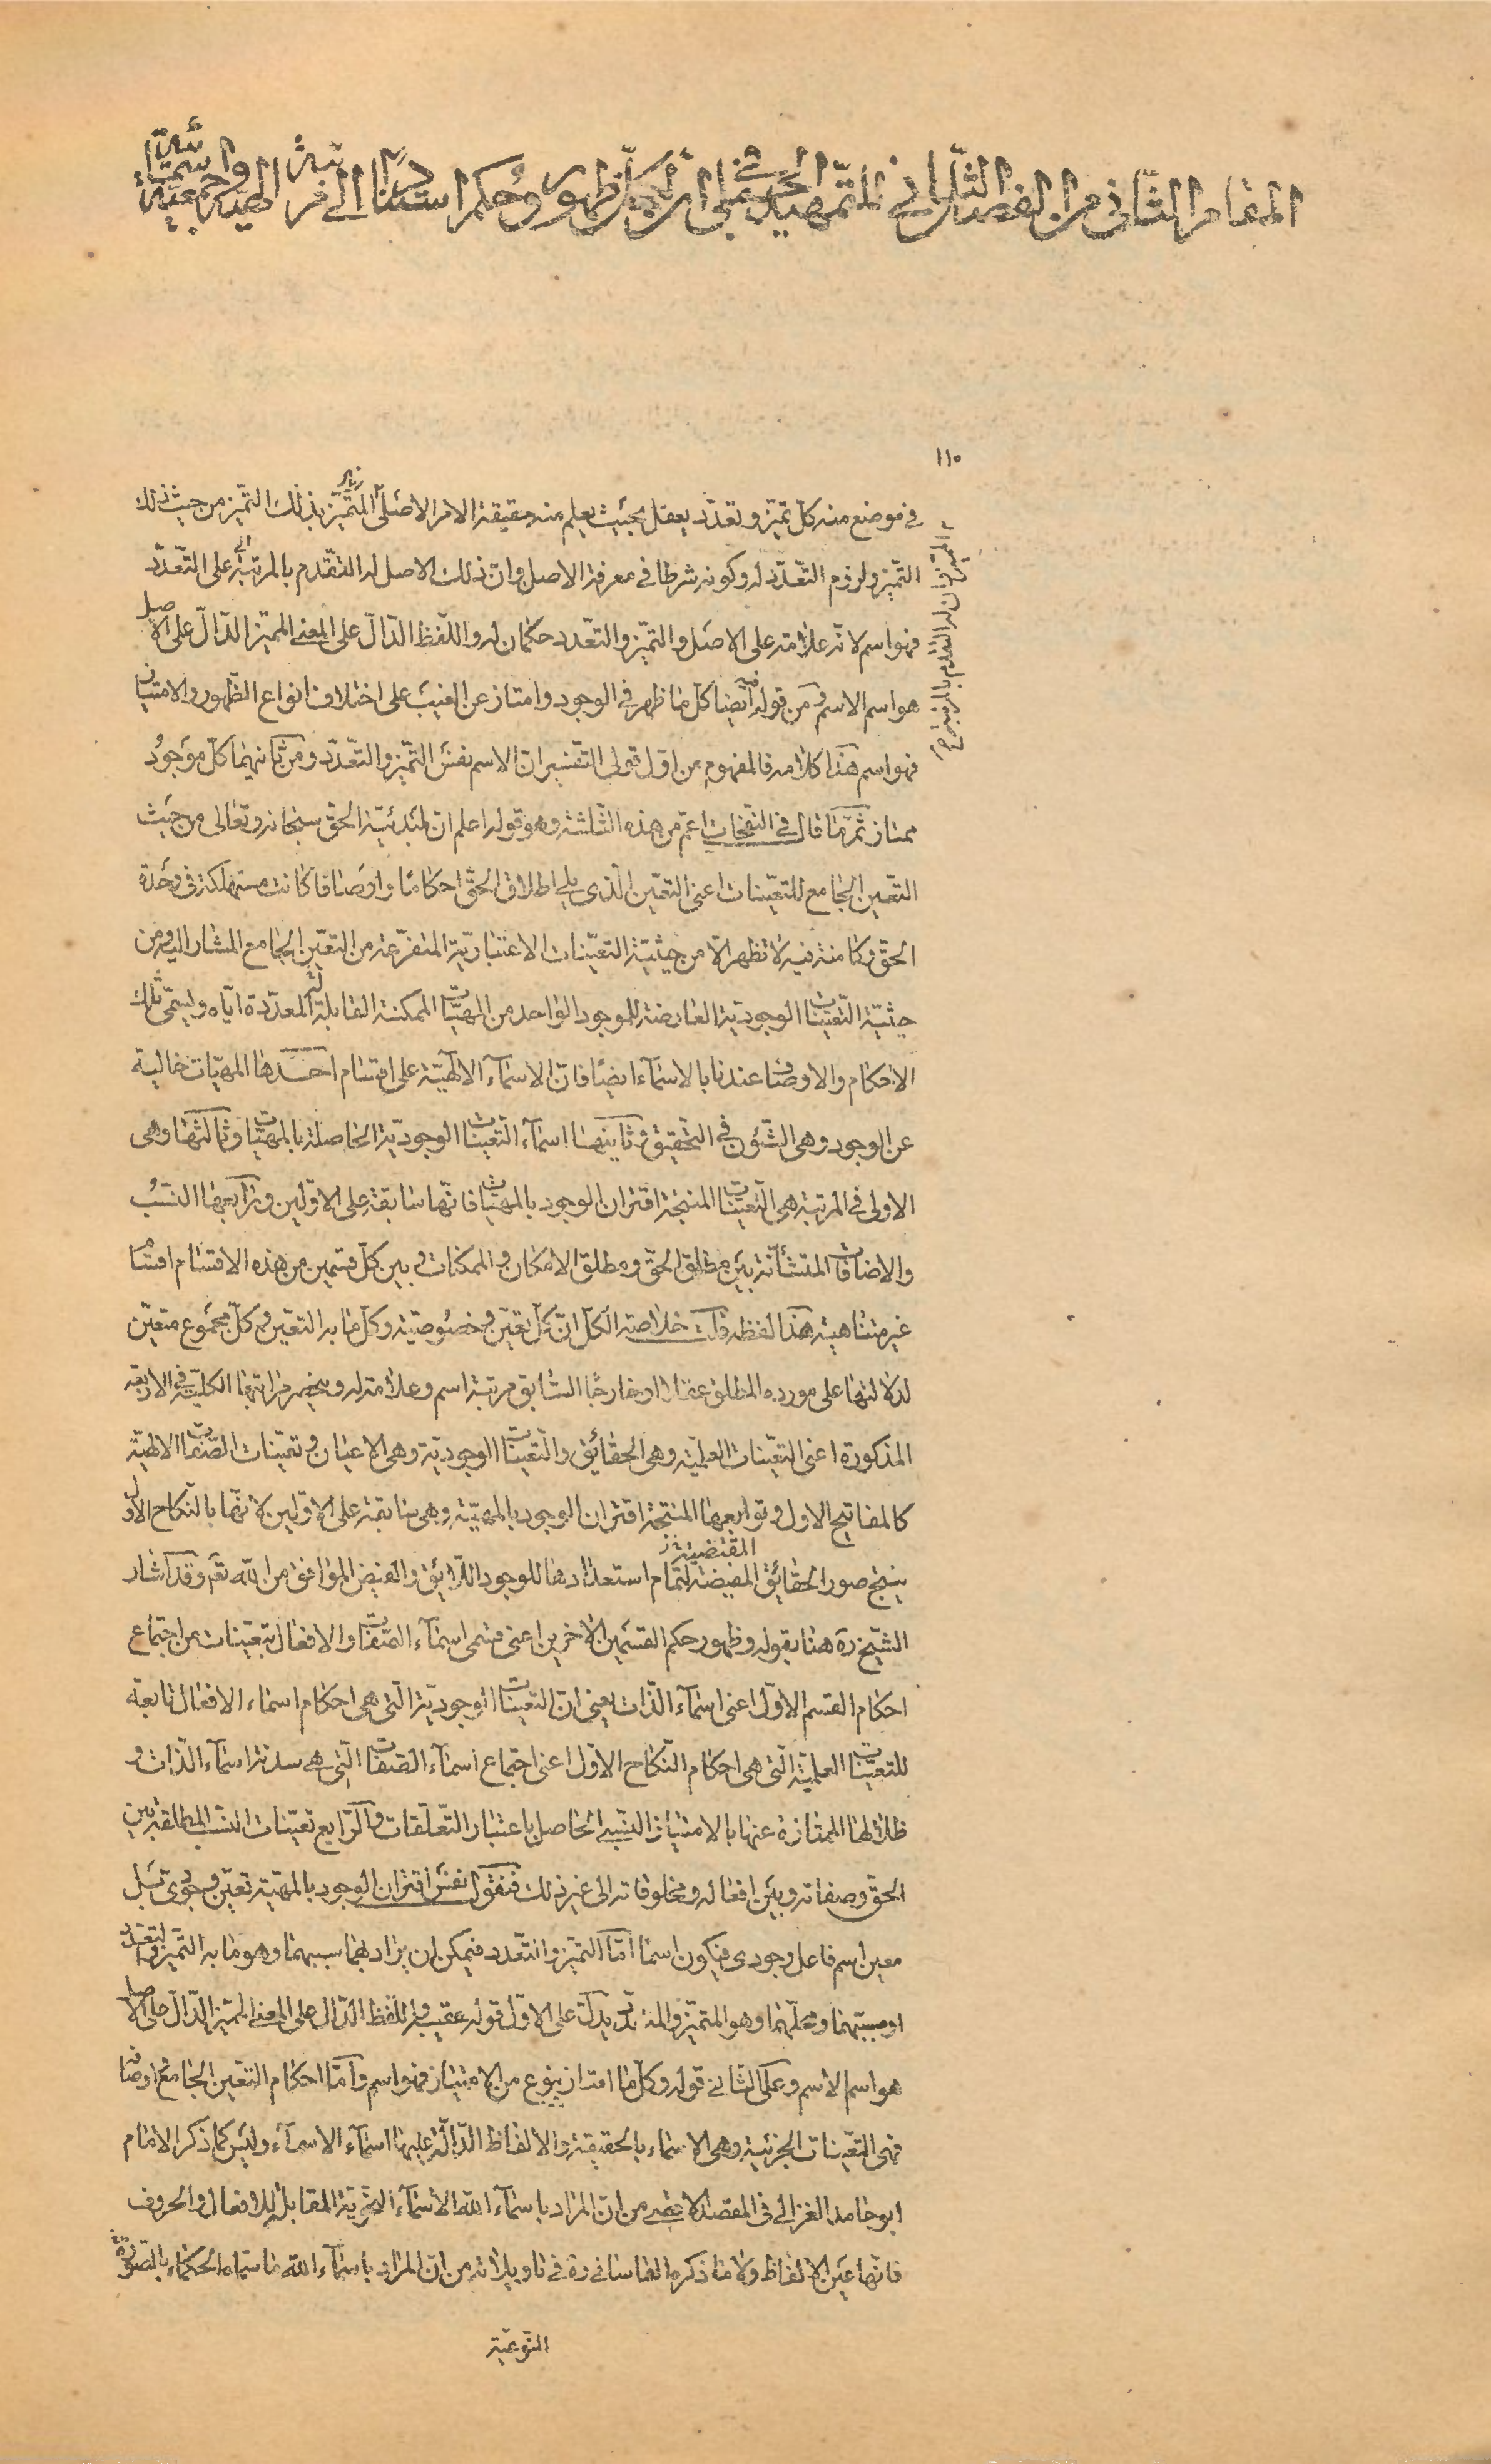 المقام الثانى من الفصل الثانى فى التمهيد الجملى لظهوره وحكم استناد آثاره الى مراتب الهية وجمعية اسمائية
١١٠
فى موضع منه كلّ تميّز وتعدّد يعقل بحيث يعلم منه حقيقة الامر الاصلىّ المتميّز بذلك التميّز من حيث ذلك
التميّز ولزوم التعدّد له وكونه شرطا فى معرفة الاصل وان ذلك الاصل له التقدم بالمرتبة على التعدّد
فهو اسم لانّه علامة على الاصل والتميّز والتعدد حكمان له واللّفظ الدّالّ على المعنى المميّز الدّالّ على الاصل
هو اسم الاسم ومن قوله فيه ايضا كلّ ما ظهر فى الوجود وامتاز عن الغيب على اختلاف انواع الظهور والامتياز
فهو اسم هذا كلامه فالمفهوم من اوّل قولى التفسير ان الاسم نفس التميّز والتعدّد ومن ثانيهما كلّ موجود
ممتاز ثمّ ما قال فى النفحات اعمّ من هذه الثلثة وهو قوله اعلم ان لمبدئيّة الحقّ سبحانه وتعالى من حيث
التعيّن الجامع للتعيّنات اعنى التعيّن الّذى يلى اطلاق الحقّ احكاما واوصافا كانت مستهلكة فى وحدة
الحقّ وكامنة فيه لا تظهر الّا من حيثيّة التعيّنات الاعتباريّة المتفرّعة من التعيّن الجامع المشار اليه ومن
حيثيّة التّعيّنات الوجوديّة العارضة للموجود الواحد من المهيّات الممكنة القابلة له المعدّدة ايّاه ويسمّى تلك
الاحكام والاوصاف عندنا بالاسماء ايضا فانّ الاسمآء الالهيّة على اقسام احدها المهيّات خالية
عن الوجود وهى الشّؤن فى التحقيق وثانيها اسمآء التّعيّنات الوجوديّة الحاصلة بالمهيّات وثالثها وهى
الاولى فى المرتبة هى التّعيّنات المنتجة اقتران الوجود بالمهيّات فانّها سابقة على الاوّلين ورابعها النّسب
والاضافات المنتشأة بين مطلق الحقّ ومطلق الامكان والممكنات وبين كلّ قسمين من هذه الاقسام اقساما
غير متناهية هذا لفظه قلت خلاصة الكلّ انّ كلّ تعيّن وخصوصيّة وكلّ ما به التعيّن وكلّ مجموع متعيّن
لدلالتها على مورده المطلق عقلا او خارجا السّابق مرتبة اسم وعلامة له وينحصر مراتبها الكليّة فى الاربعة
المذكورة اعنى التعيّنات العلميّة وهى الحقائق والتّعيّنات الوجوديّة وهى الاعيان وتعيّنات الصّفات الالهيّة
كالمفاتيح الاول وتوابعها المنتجة اقتران الوجود بالمهيّة وهى سابقة على الاوّلين لانّها بالنّكاح الاوّل
المقتضية ز
ينتج صور الحقائق المفيضة لتمام استعدادها للوجود اللّائق والفيض الموافق من اللّه تعم وقد اشار
الشّيخ ره هنا بقوله وظهور حكم القسمين الاخرين اعنى قسمى اسمآء الصّفات والافعال بتعيّنات من اجتماع
احكام القسم الاوّل اعنى اسمآء الذّات يعنى انّ التعيّنات الوجوديّة الّتى هى احكام اسماء الافعال تابعة
للتعيّنات العلميّة الّتى هى احكام النّكاح الاوّل اعنى اجتماع اسمآء الصّفات الّتى هى سدنة اسمآء الذّات و
ظلالها الممتازة عنها بالامتياز النّسبى الحاصل باعتبار التّعلّقات والرّابع تعيّنات النّسب المطلقة بين
الحقّ وصفاته وبين افعاله ومخلوقاته الى غير ذلك فنقول نفس اقتران الوجود بالمهيّة تعيّن وجودى قبل
معين اسم فاعل وجودى فيكون اسما امّا التميّز والتعدد فيمكن ان يراد بهما سببهما وهو ما به التميّز والتعدّد
او مسبّبهما ومحلّهما وهو المتميّز والمتعدّد يدلّ على الاوّل قوله عقيبه واللّفظ الدّالّ على المعنى المميّز الدّالّ على الاصل
هو اسم الاسم وعلى الثانى قوله وكلّ ما امتاز بنوع من الامتياز فهو اسم وامّا احكام التعيّن الجامع واوصافه
فهى التعّينات الجزئية وهى الاسماء بالحقيقة والالفاظ الدّالّة عليها اسمآء الاسمآء وليس كما ذكر الامام
ابو حامد الغزالى فى المقصد الاقصى من ان المراد باسمآء اللّه الاسمآء النّحويّة المقابلة للافعال والحروف
فانّها عين الالفاظ ولا ما ذكره القاسانى ره فى تاويلاته من انّ المراد باسمآء اللّه ما سمّاه الحكماء بالصّورة
النّوعيّة